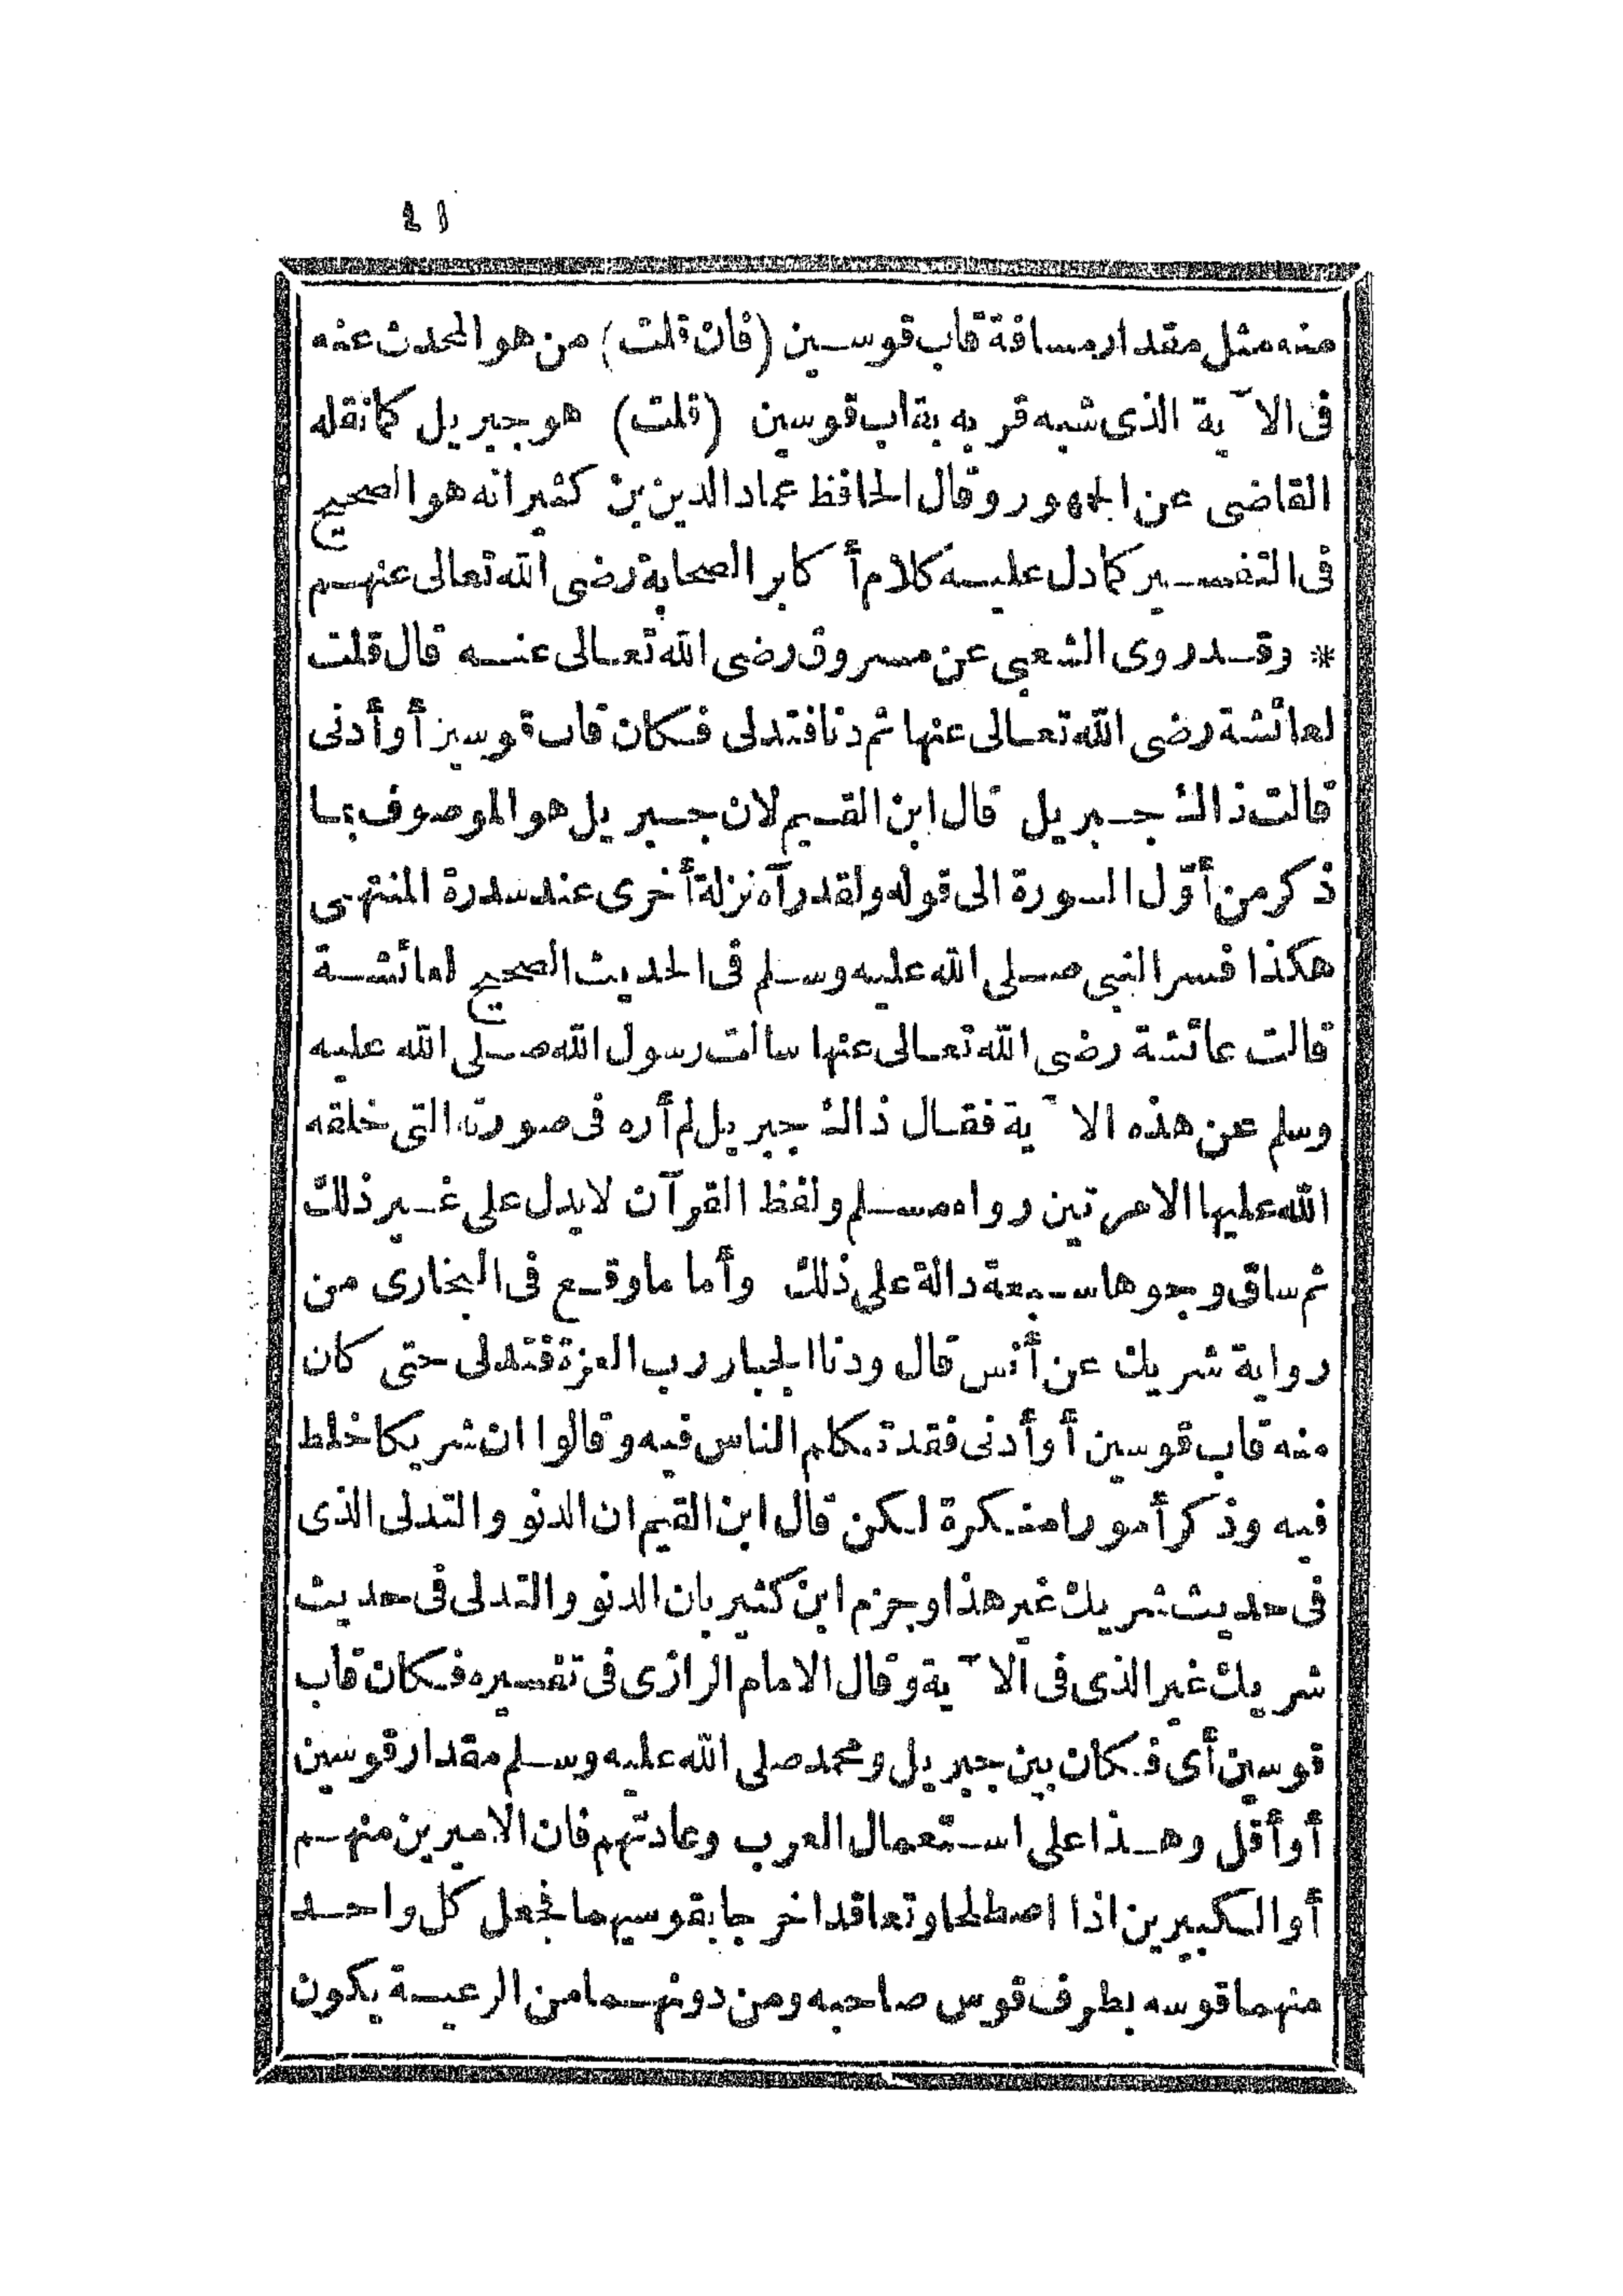 ٤١
منه مثل مقدار مسافة قاب قوسين (فان قلت) من هو المحدث عنه
فى الآية الذى شبه قربه بقاب قوسين (قلت) هو جبريل كما نقله
القاضى عن الجمهور وقال الحافظ عماد الدين بن كثير انه هو الصحيح
فى التفسير كما دل عليه كلام أكابر الصحابة رضى الله تعالى عنهم
* وقد روى الشعبي عن مسروق رضى الله تعالى عنه قال قلت
لعائشة رضى الله تعالى عنها ثم دنا فتدلى فكان قاب قوسين أو أدنى
قالت ذاك جبريل قال ابن القيم لان جبريل هو الموصوف بما
ذكر من أوّل السورة الى قوله ولقد رآه نزلة أخرى عند سدرة المنتهى
هكذا فسر النبي صلى الله عليه وسلم فى الحديث الصحيح لعائشة
قالت عائشة رضى الله تعالى عنها سالت رسول الله صلى الله عليه
وسلم عن هذه الآية فقال ذاك جبريل لم أره فى صورته التى خلقه
الله عليها الا مرتين رواه مسلم ولفظ القرآن لا يدل على غير ذلك
ثم ساق وجوها سبعة دالة على ذلك وأما ما وقع فى البخارى من
رواية شريك عن أنس قال ودنا الجبار رب العزة فتدلى حتى كان
منه قاب قوسين أو أدنى فقد تكلم الناس فيه وقالوا ان شريكا خلط
فيه وذكر أمورا منكرة لكن قال ابن القيم ان الدنو والتدلى الذى
فى حديث شريك غير هذا وجزم ابن كثير بان الدنو والتدلى فى حديث
شريك غير الذى فى الآية وقال الامام الرازى فى تفسيره فكان قاب
قوسين أى فكان بين جبريل ومحمد صلى الله عليه وسلم مقدار قوسين
أو أقل وهذا على استعمال العرب وعادتهم فان الاميرين منهم
أو الكبيرين اذا اصطلحا وتعاقدا خرجا بقوسيهما فجعل كل واحد
منهما قوسه بطرف قوس صاحبه ومن دونهما من الرعية يكون